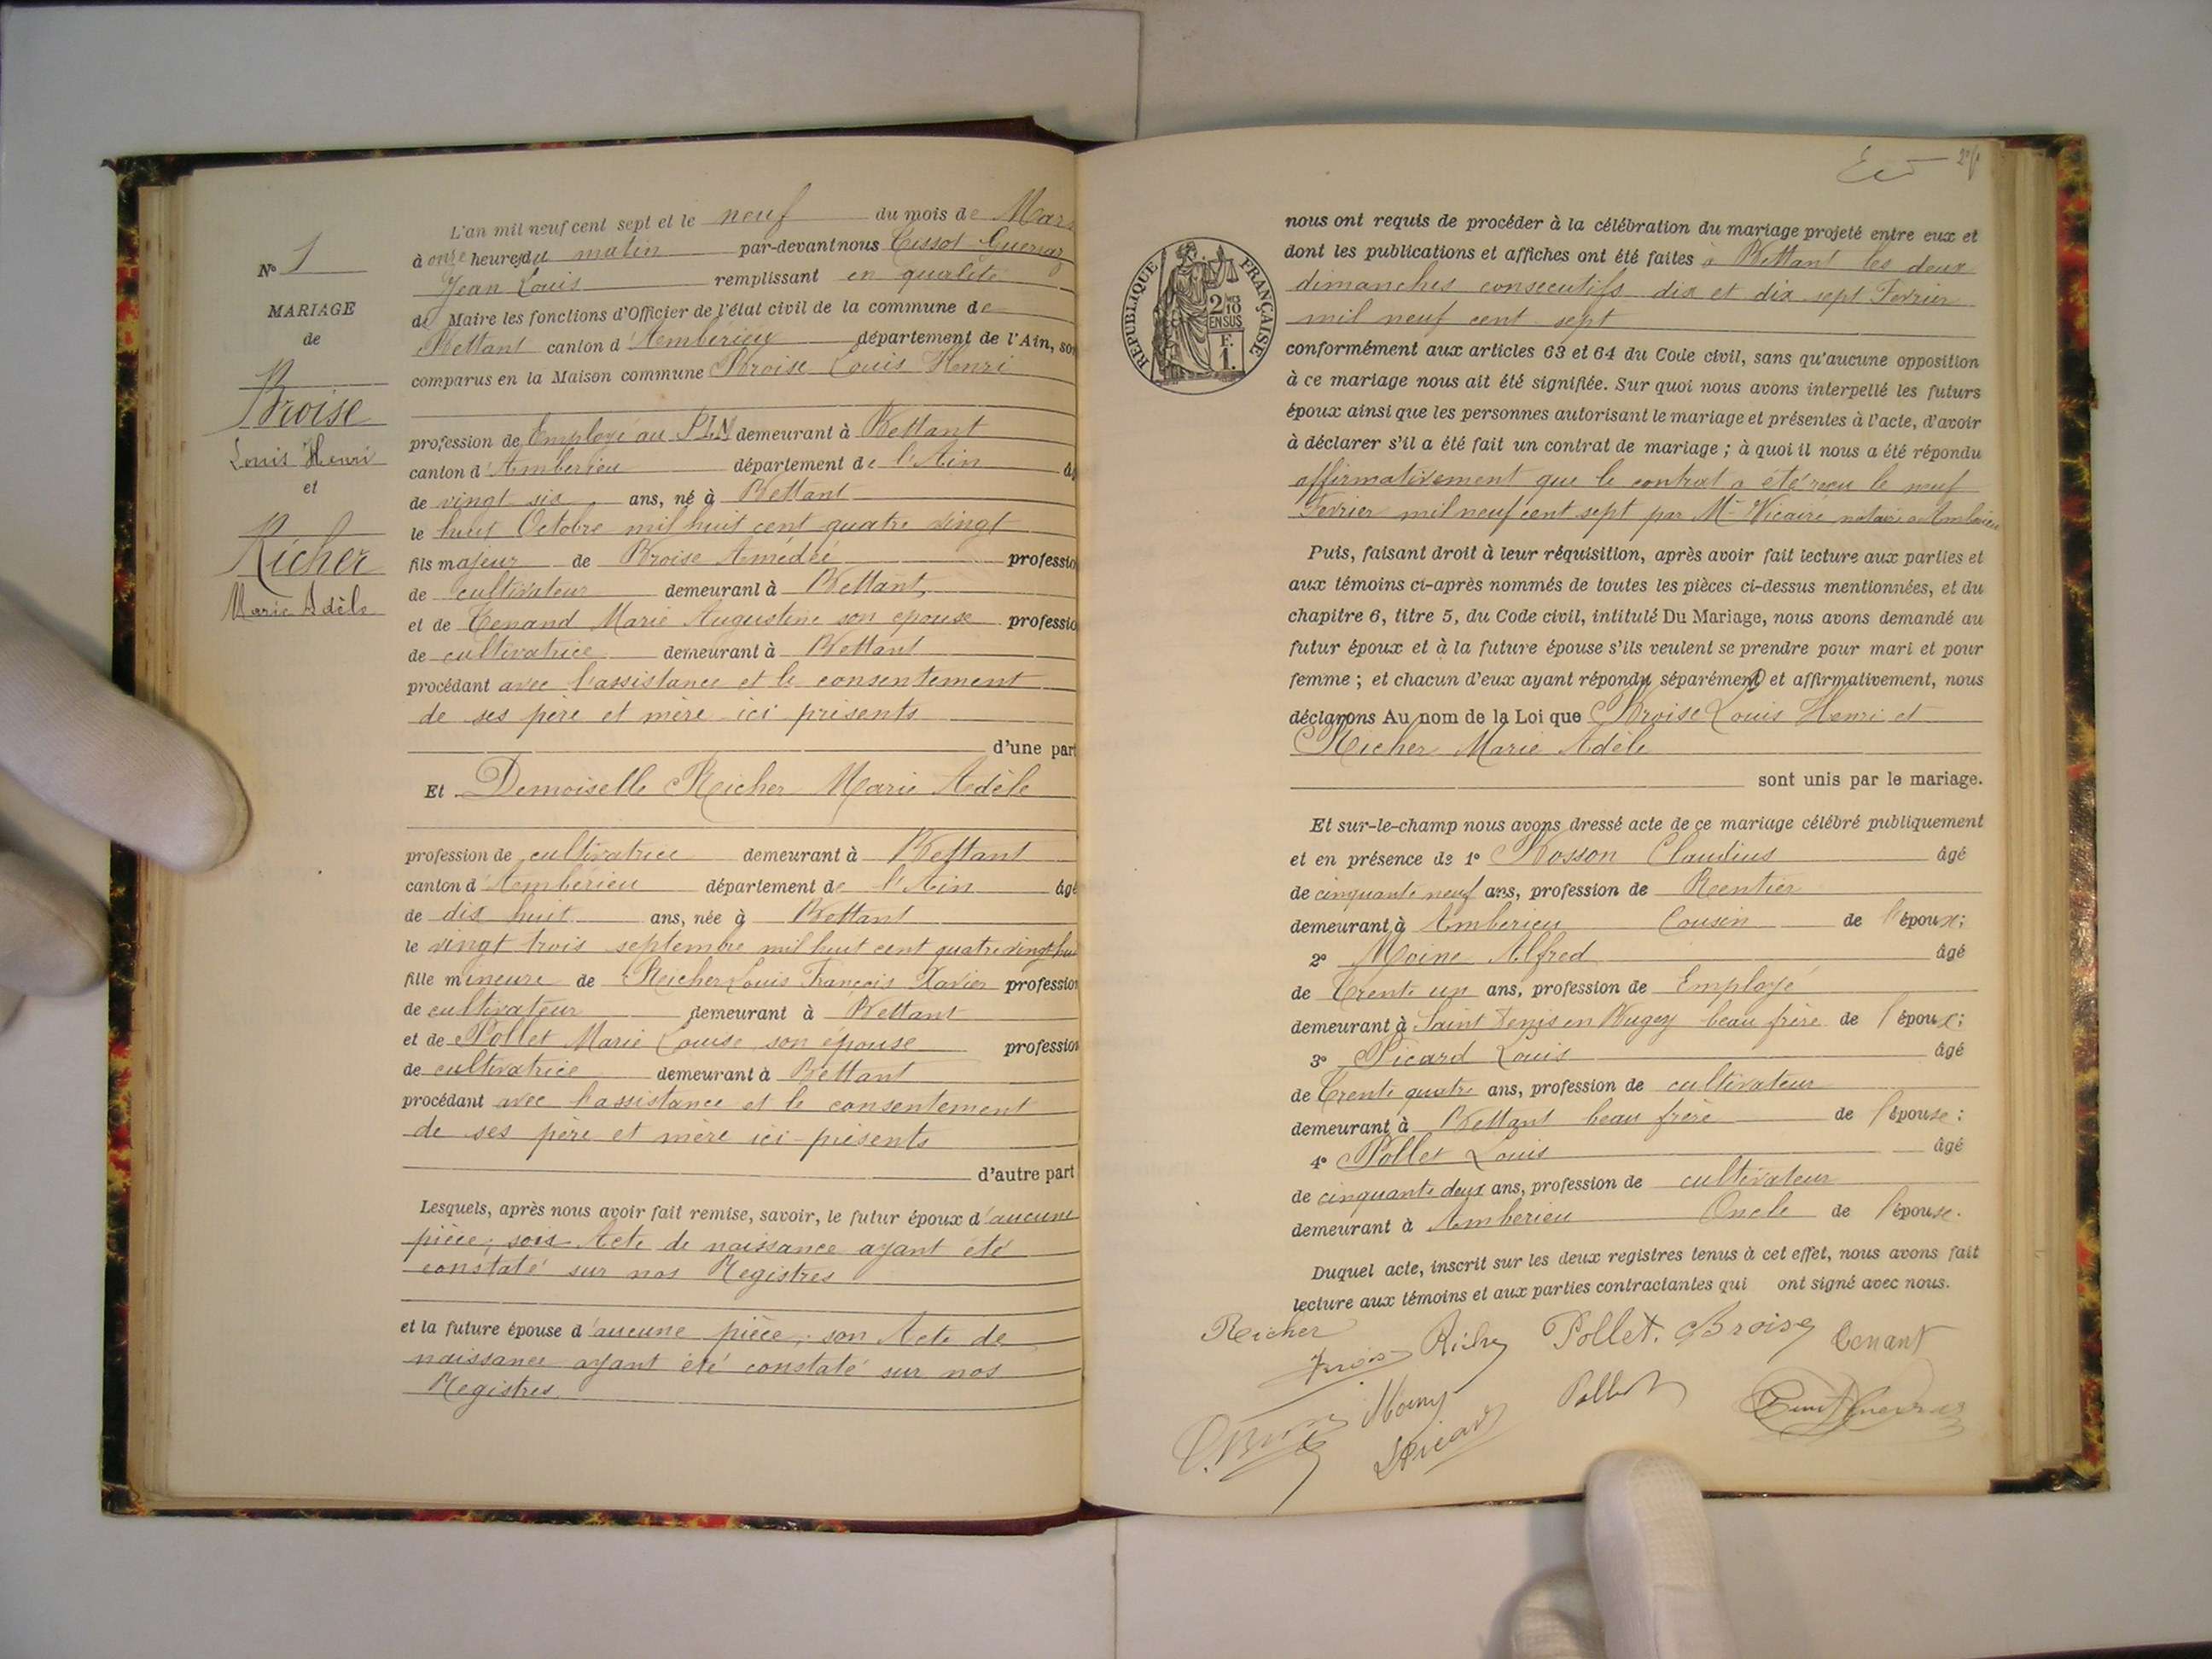 N° 1
MARIAGE
de
Broise
Louis Henri
et
Richer
Marie Adèle
L'an mil neuf cent sept et le neuf du mois de Mars
à onze heures du matin par-devant nous Tissot Guerraz
Jean Louis remplissant en qualité
de Maire les fonctions d'Officier de l'état civil de la commune de
Bettant canton d'Ambérieu département de l'Ain, son
comparus en la Maison commune Broise Louis Henri
profession de Employé au PLM demeurant à Bettant
canton d'Ambérieu département de l'Ain âg
de vingt six ans, né à Bettant
le huit Octobre mil huit cent quatre vingt
fils majeur de Broise Amédée profession
de cultivateur demeurant à Bettant,
et de Tenand Marie Augustine son epouse profession
de cultivatrice demeurant à Bettant
procédant avec l'assistance et le consentement
de ses père et mère ici présents
d'une part
Et Demoiselle Richer Marie Adèle
profession de cultivatrice demeurant à Bettant
canton d'Ambérieu département de l'Ain âgé
de dix huit ans, née à Bettant
le vingt trois septembre mil huit cent quatre vingt hui
fille mineure de Richer Louis François Xavier profession
de cultivateur demeurant à Bettant
et de Pollet Marie Louise son épouse profession
de cultivatrice demeurant à Bettant
procédant avec l'assistance et le consentement
de ses père et mère ici présents
d'autre part
Lesquels, après nous avoir fait remise, savoir, le futur époux d'aucune
pièce, sois Acte de naissance ayant été
constaté sur nos Registres
et la future épouse d'aucune pièce, son Acte de
naissance ayant été constaté sur nos
Registres
RÉPUBLIQUE FRANÇAISE
2/10 EN SUS
F. 1.
nous ont requis de procéder à la célébration du mariage projeté entre eux et
dont les publications et affiches ont été faites à Bettant les deux
dimanches consecutifs dix et dix sept Fevrier
mil neuf cent sept
conformément aux articles 63 et 64 du Code civil, sans qu'aucune opposition
à ce mariage nous ait été signifiée. Sur quoi nous avons interpellé les futurs
époux ainsi que les personnes autorisant le mariage et présentes à l'acte, d'avoir
à déclarer s'il a été fait un contrat de mariage ; à quoi il nous a été répondu
affirmativement que le contrat a été reçu le neuf
Fevrier mil neuf cent sept par Me Vicaire notaire à Amberieu
Puis, faisant droit à leur réquisition, après avoir fait lecture aux parties et
aux témoins ci-après nommés de toutes les pièces ci-dessus mentionnées, et du
chapitre 6, titre 5, du Code civil, intitulé Du Mariage, nous avons demandé au
futur époux et à la future épouse s'ils veulent se prendre pour mari et pour
femme ; et chacun d'eux ayant répondu séparément et affirmativement, nous
déclarons Au nom de la Loi que Broise Louis Henri et
Richer Marie Adèle
sont unis par le mariage.
Et sur-le-champ nous avons dressé acte de ce mariage célébré publiquement
et en présence de 1° Bosson Claudius âgé
de cinquante neuf ans, profession de Rentier
demeurant à Amberieu Cousin de l'époux;
2° Moine Alfred âgé
de Trente un ans, profession de Employé
demeurant à Saint Denis en Bugey beau frère de l'époux;
3° Picard Louis âgé
de Trente quatre ans, profession de cultivateur
demeurant à Bettant beau frère de l'épouse:
4° Pollet Louis âgé
de cinquante deux ans, profession de cultivateur
demeurant à Amberieu Oncle de l'épouse.
Duquel acte, inscrit sur les deux registres tenus à cet effet, nous avons fait
lecture aux témoins et aux parties contractantes qui ont signé avec nous.
Richer Pollet. Broise Tenant
Pollet